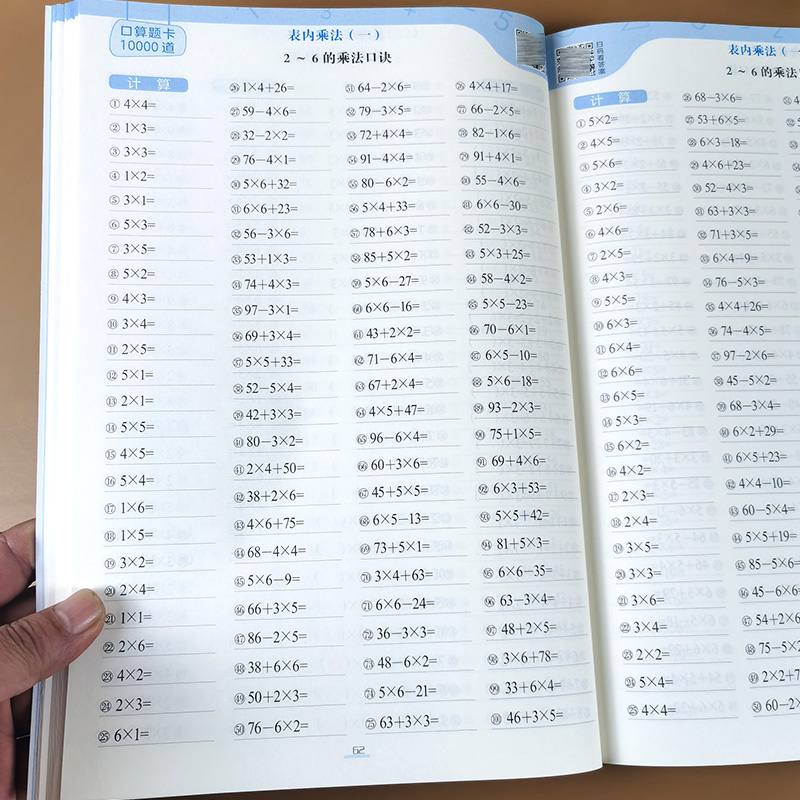 口算题卡
10000 道
表内乘法（一）
2 ~ 6 的乘法口诀
计 算
① 4×4=
② 1×3=
③ 3×3=
④ 1×2=
⑤ 3×1=
⑥ 5×3=
⑦ 3×5=
⑧ 5×2=
⑨ 4×3=
⑩ 3×4=
⑪ 2×5=
⑫ 5×1=
⑬ 2×1=
⑭ 5×5=
⑮ 4×5=
⑯ 5×4=
⑰ 1×6=
⑱ 1×5=
⑲ 3×2=
⑳ 2×4=
㉑ 1×1=
㉒ 2×6=
㉓ 4×2=
㉔ 2×3=
㉕ 6×1=
㉖ 1×4+26=
㉗ 59−4×6=
㉘ 32−2×2=
㉙ 76−4×1=
㉚ 5×6+32=
㉛ 6×6+23=
㉜ 56−3×6=
㉝ 53+1×3=
㉞ 74+4×3=
㉟ 97−3×1=
㊱ 69+3×4=
㊲ 5×5+33=
㊳ 52−5×4=
㊴ 42+3×3=
㊵ 80−3×2=
㊶ 2×4+50=
㊷ 38+2×6=
㊸ 4×6+75=
㊹ 68−4×4=
㊺ 5×6−9=
㊻ 66+3×5=
㊼ 86−2×5=
㊽ 38+6×6=
㊾ 50+2×3=
㊿ 76−6×2=
51 64−2×6=
52 79−3×5=
53 72+4×4=
54 91−4×4=
55 80−6×2=
56 5×4+33=
57 78+6×3=
58 85+5×2=
59 5×6−27=
60 6×6−16=
61 43+2×2=
62 71−6×4=
63 67+2×4=
64 4×5+47=
65 96−6×4=
66 60+3×6=
67 45+5×5=
68 6×5−13=
69 73+5×1=
70 3×4+63=
71 6×6−24=
72 36−3×3=
73 48−6×2=
74 5×6−21=
75 63+3×3=
76 4×4+17=
77 66−2×5=
78 82−1×6=
79 91+4×1=
80 55−4×6=
81 6×6−30=
82 52−3×3=
83 5×3+25=
84 58−4×2=
85 5×5−23=
86 70−6×1=
87 6×5−10=
88 5×6−18=
89 93−2×3=
90 75+1×5=
91 69+4×6=
92 6×3+53=
93 5×5+42=
94 81+5×3=
95 6×6−35=
96 63−3×4=
97 48+2×5=
98 3×6+78=
99 33+6×4=
100 46+3×5=
62
扫码看答案
表内乘法（一
2 ~ 6 的乘法口
计 算
① 5×2=
② 4×5=
③ 5×6=
④ 3×2=
⑤ 2×6=
⑥ 4×6=
⑦ 2×5=
⑧ 4×3=
⑨ 5×5=
⑩ 6×3=
⑪ 6×4=
⑫ 6×6=
⑬ 6×5=
⑭ 5×3=
⑮ 6×2=
⑯ 4×2=
⑰ 2×3=
⑱ 2×4=
⑲ 3×5=
⑳ 3×3=
㉑ 3×6=
㉒ 3×4=
㉓ 2×2=
㉔ 5×4=
㉕ 4×4=
㉖ 68−3×6=
㉗ 53+6×5=
㉘ 6×3−18=
㉙ 4×6+23=
㉚ 52−4×3=
㉛ 63+3×3=
㉜ 71+3×5=
㉝ 6×4−9=
㉞ 76−5×3=
㉟ 4×4+26=
㊱ 74−4×5=
㊲ 97−2×6=
㊳ 45−5×2=
㊴ 68−3×4=
㊵ 6×2+29=
㊶ 6×5+23=
㊷ 4×4−10=
㊸ 60−5×4=
㊹ 5×5+19=
㊺ 85−5×6=
㊻ 45−6×6
㊼ 54+2×6
㊽ 75−5×2
㊾ 2×2+7
㊿ 60−2×